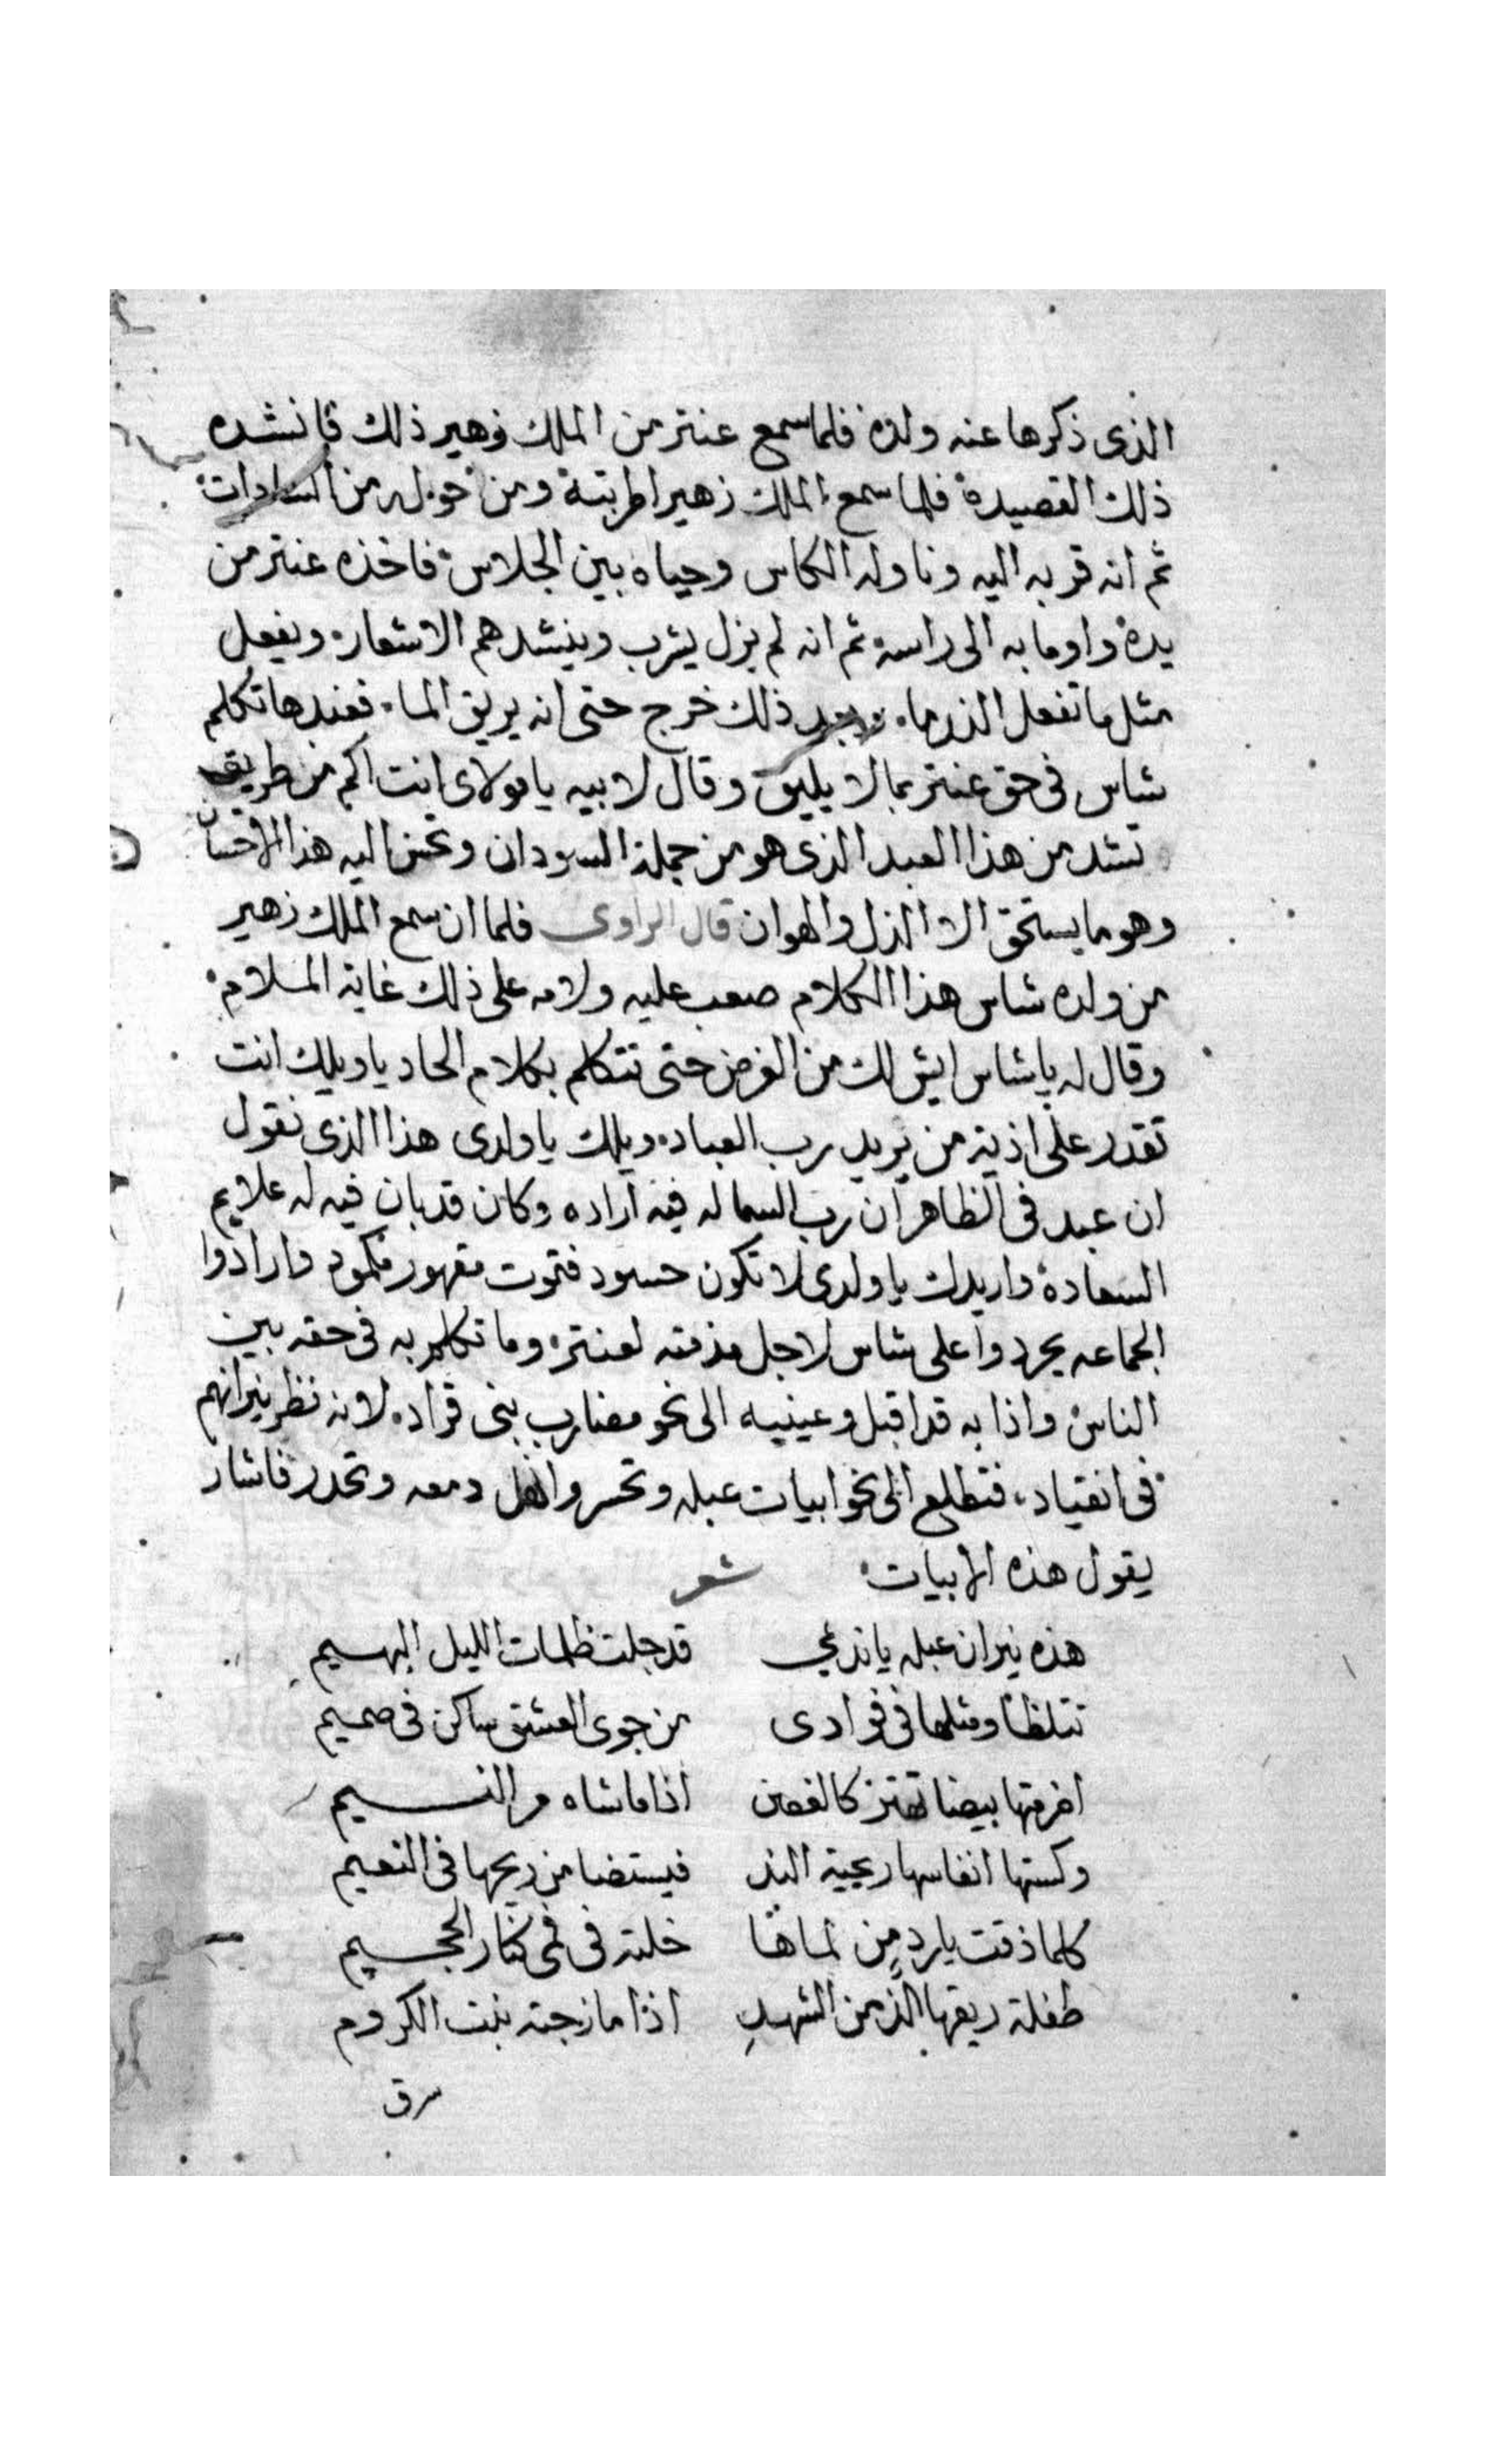 الذى ذكرها عنه ولده فلما سمع عنتر من الملك زهير ذلك فانشده
ذلك القصيدة فلما سمع الملك زهير اطربته ومن حوله من السادات
ثم انه قربه اليه وناوله الكاس وحياه بين الجلاس فاخذه عنتر من
يده واوما به الى راسه ثم انه لم يزل يشرب وينشدهم الاشعار ويفعل
مثل ما تفعل الندما وبعد ذلك خرج حتى انه يريق الما فعندها تكلم
شاس فى حق عنتر بما لا يليق وقال لابيه يا مولاى انت اكم من طريق
تشد من هذا العبد الذى هو من جملة السودان وتحسن اليه هذا الاحسان
وهو ما يستحق الا الذل والهوان قال الراوى فلما ان سمع الملك زهير
من ولده شاس هذا الكلام صعب عليه ولامه على ذلك غاية الملام
وقال له يا شاس ايش لك من الغرض حتى تتكلم بكلام الحاد يا ويلك انت
تقدر على اذية من يريد رب العباد ويلك يا ولدى هذا الذى تقول
ان عبد فى الظاهر ان رب السما له فيه اراده وكان قد بان فيه له علايم
السعادة واريدك يا ولدى لا تكون حسود فتموت مقهور مكمود وارادوا
الجماعه يجردوا على شاس لاجل مذمته لعنتر وما تكلم به فى حقه بين
الناس واذا به قد اقبل وعينيه الى نحو مضارب بنى قراد لانه نظر نيرانهم
فى انقياد فتطلع الى نحو ابيات عبله وتحسر وانهل دمعه وتحدر فاشار
يقول هذه الابيات شعر
هذه نيران عبله يا نديمي قد جلت ظلمات الليل البهيم
تتلظا ومثلها فى فوادى من جوى العشق ساكن فى صميم
اضرمتها بيضا تهتز كالغصن اذا ما شاه مر النسيم
وكستها انفاسها ريحية الند فيستضا من ريحها فى النعيم
كلما ذقت بارد من لماها خلته فى فمى كنار الجحيم
طفلة ريقها الذ من الشهد اذا مازجته بنت الكروم
سرق